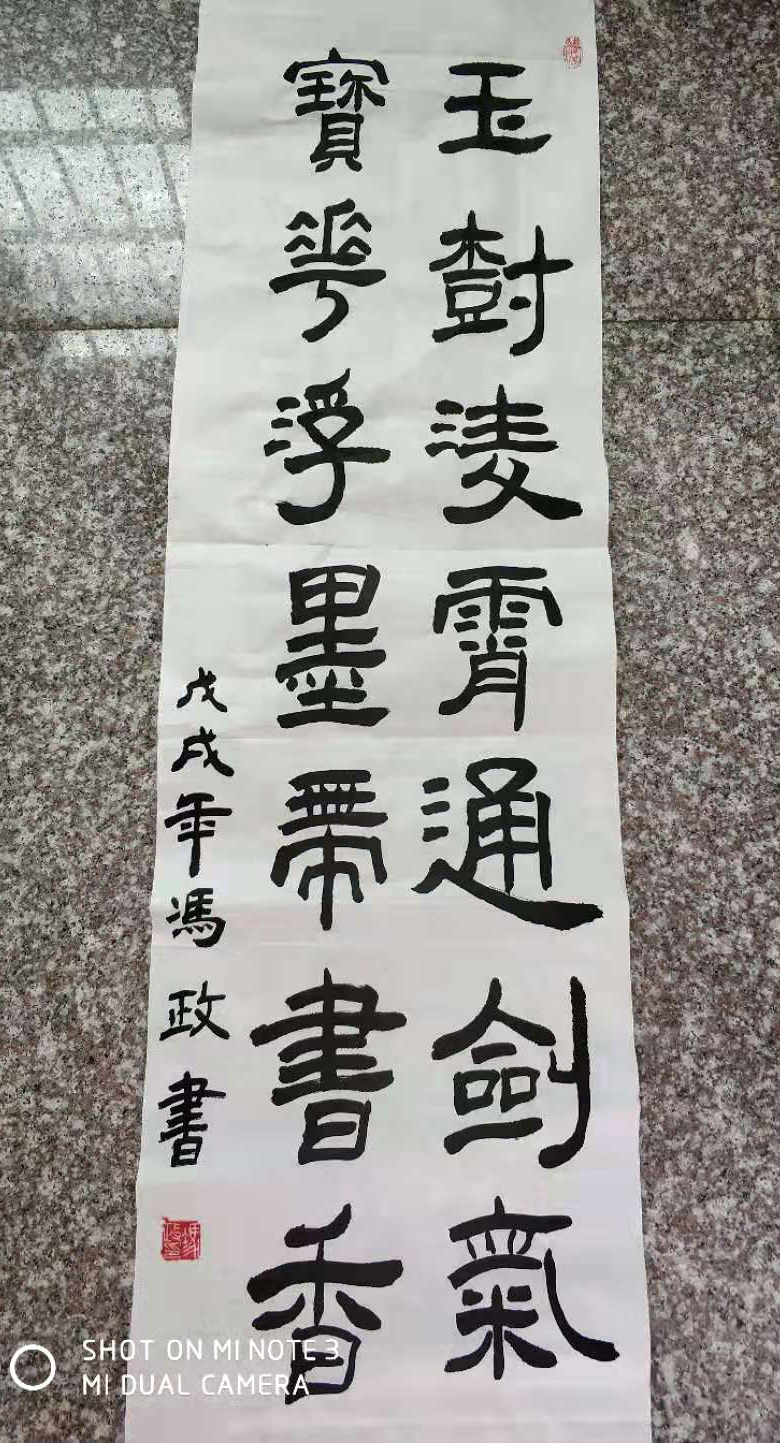 玉樹淩霄通劍氣
寶華浮墨帶書香
戊戌年馮政書
SHOT ON MI NOTE 3
MI DUAL CAMERA